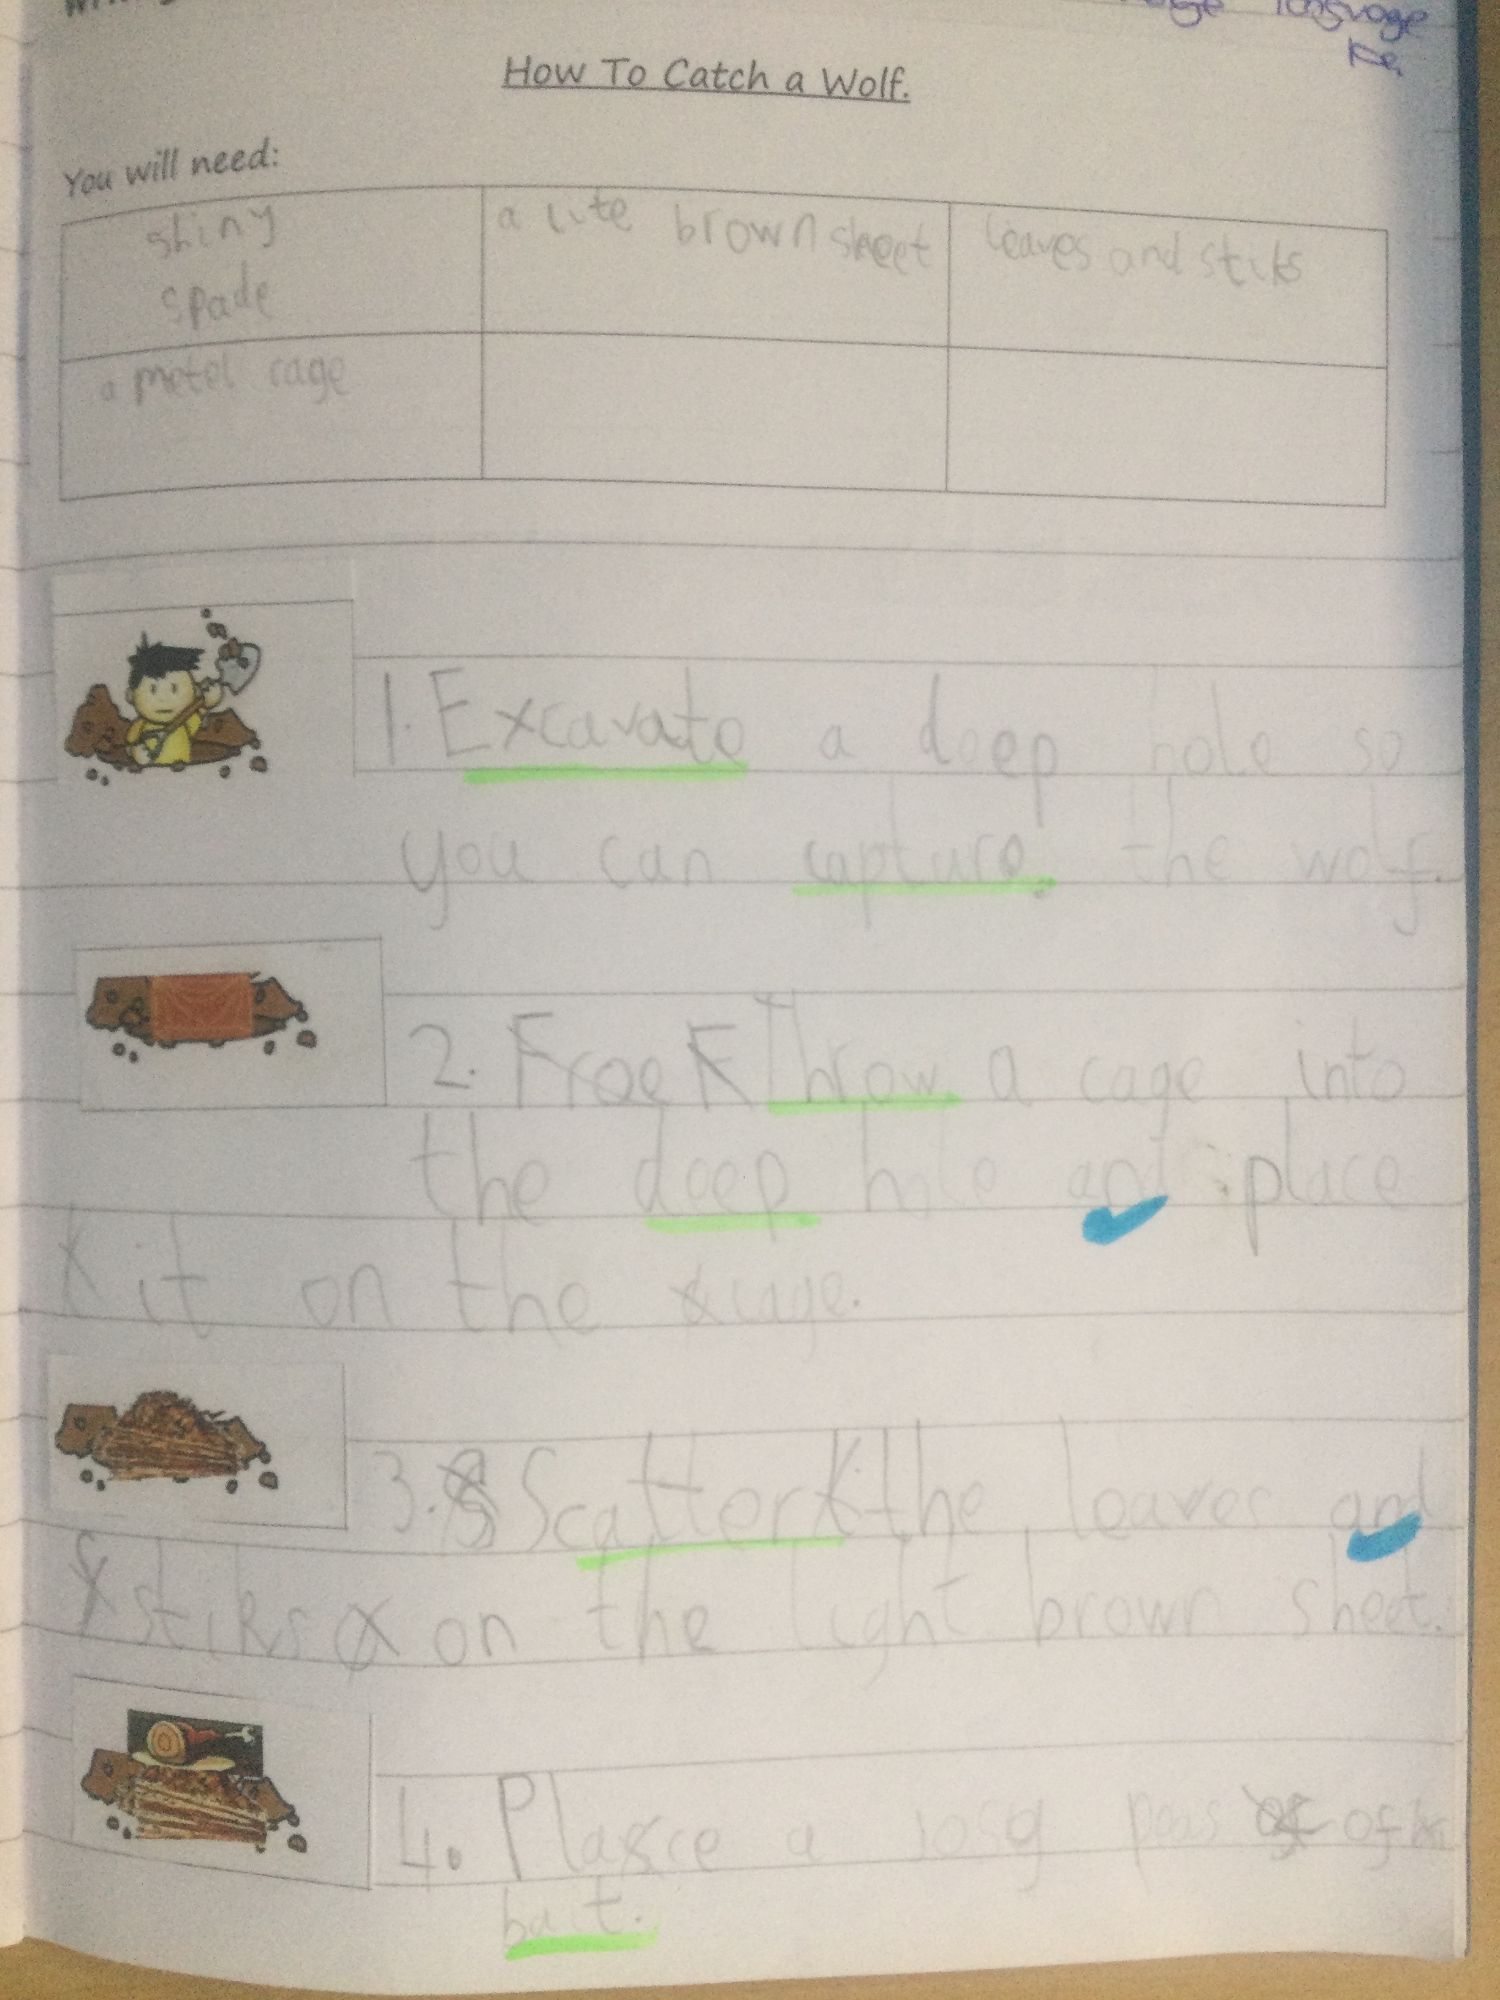 language
How To Catch a Wolf.
You will need:
shiny
spade
a lite brown sheet
leaves and stiks
a metel cage
1. Excavate a deep hole so
you can capture the wolf.
2. Froe F Throw a cage into
the deep hole and place
it on the cage.
3. S Scatter the leaves and
stiks on the light brown sheet.
4. Place a josy peas of
bait.